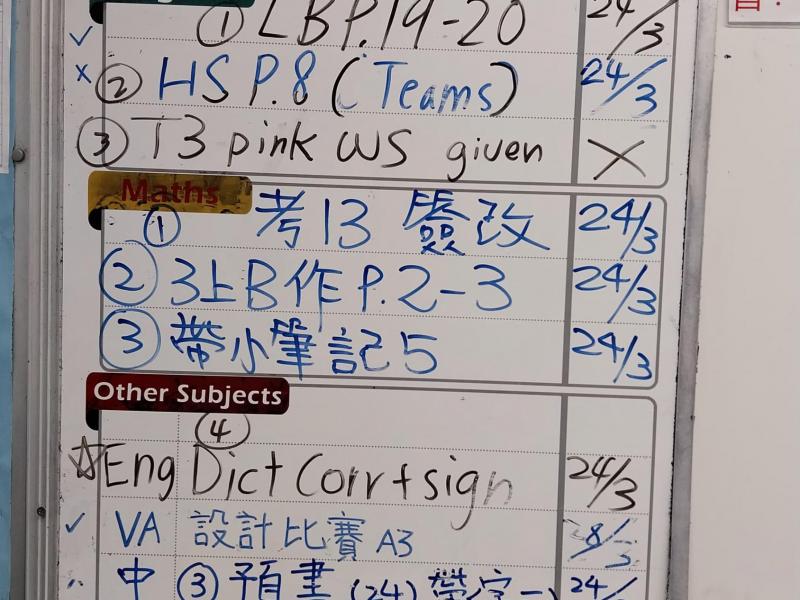 ① LB P.19-20 24/3
✓
x ② HS P.8 (Teams) 24/3
③ T3 pink WS given ×
Maths
① 考13 簽改 24/3
② 3上B作 P.2-3 24/3
③ 帶小筆記5 24/3
Other Subjects
④
☆ Eng Dict Corr + sign 24/3
✓ VA 設計比賽 A3 8/5
中 ③ 預書 (24) 螢字一 24/